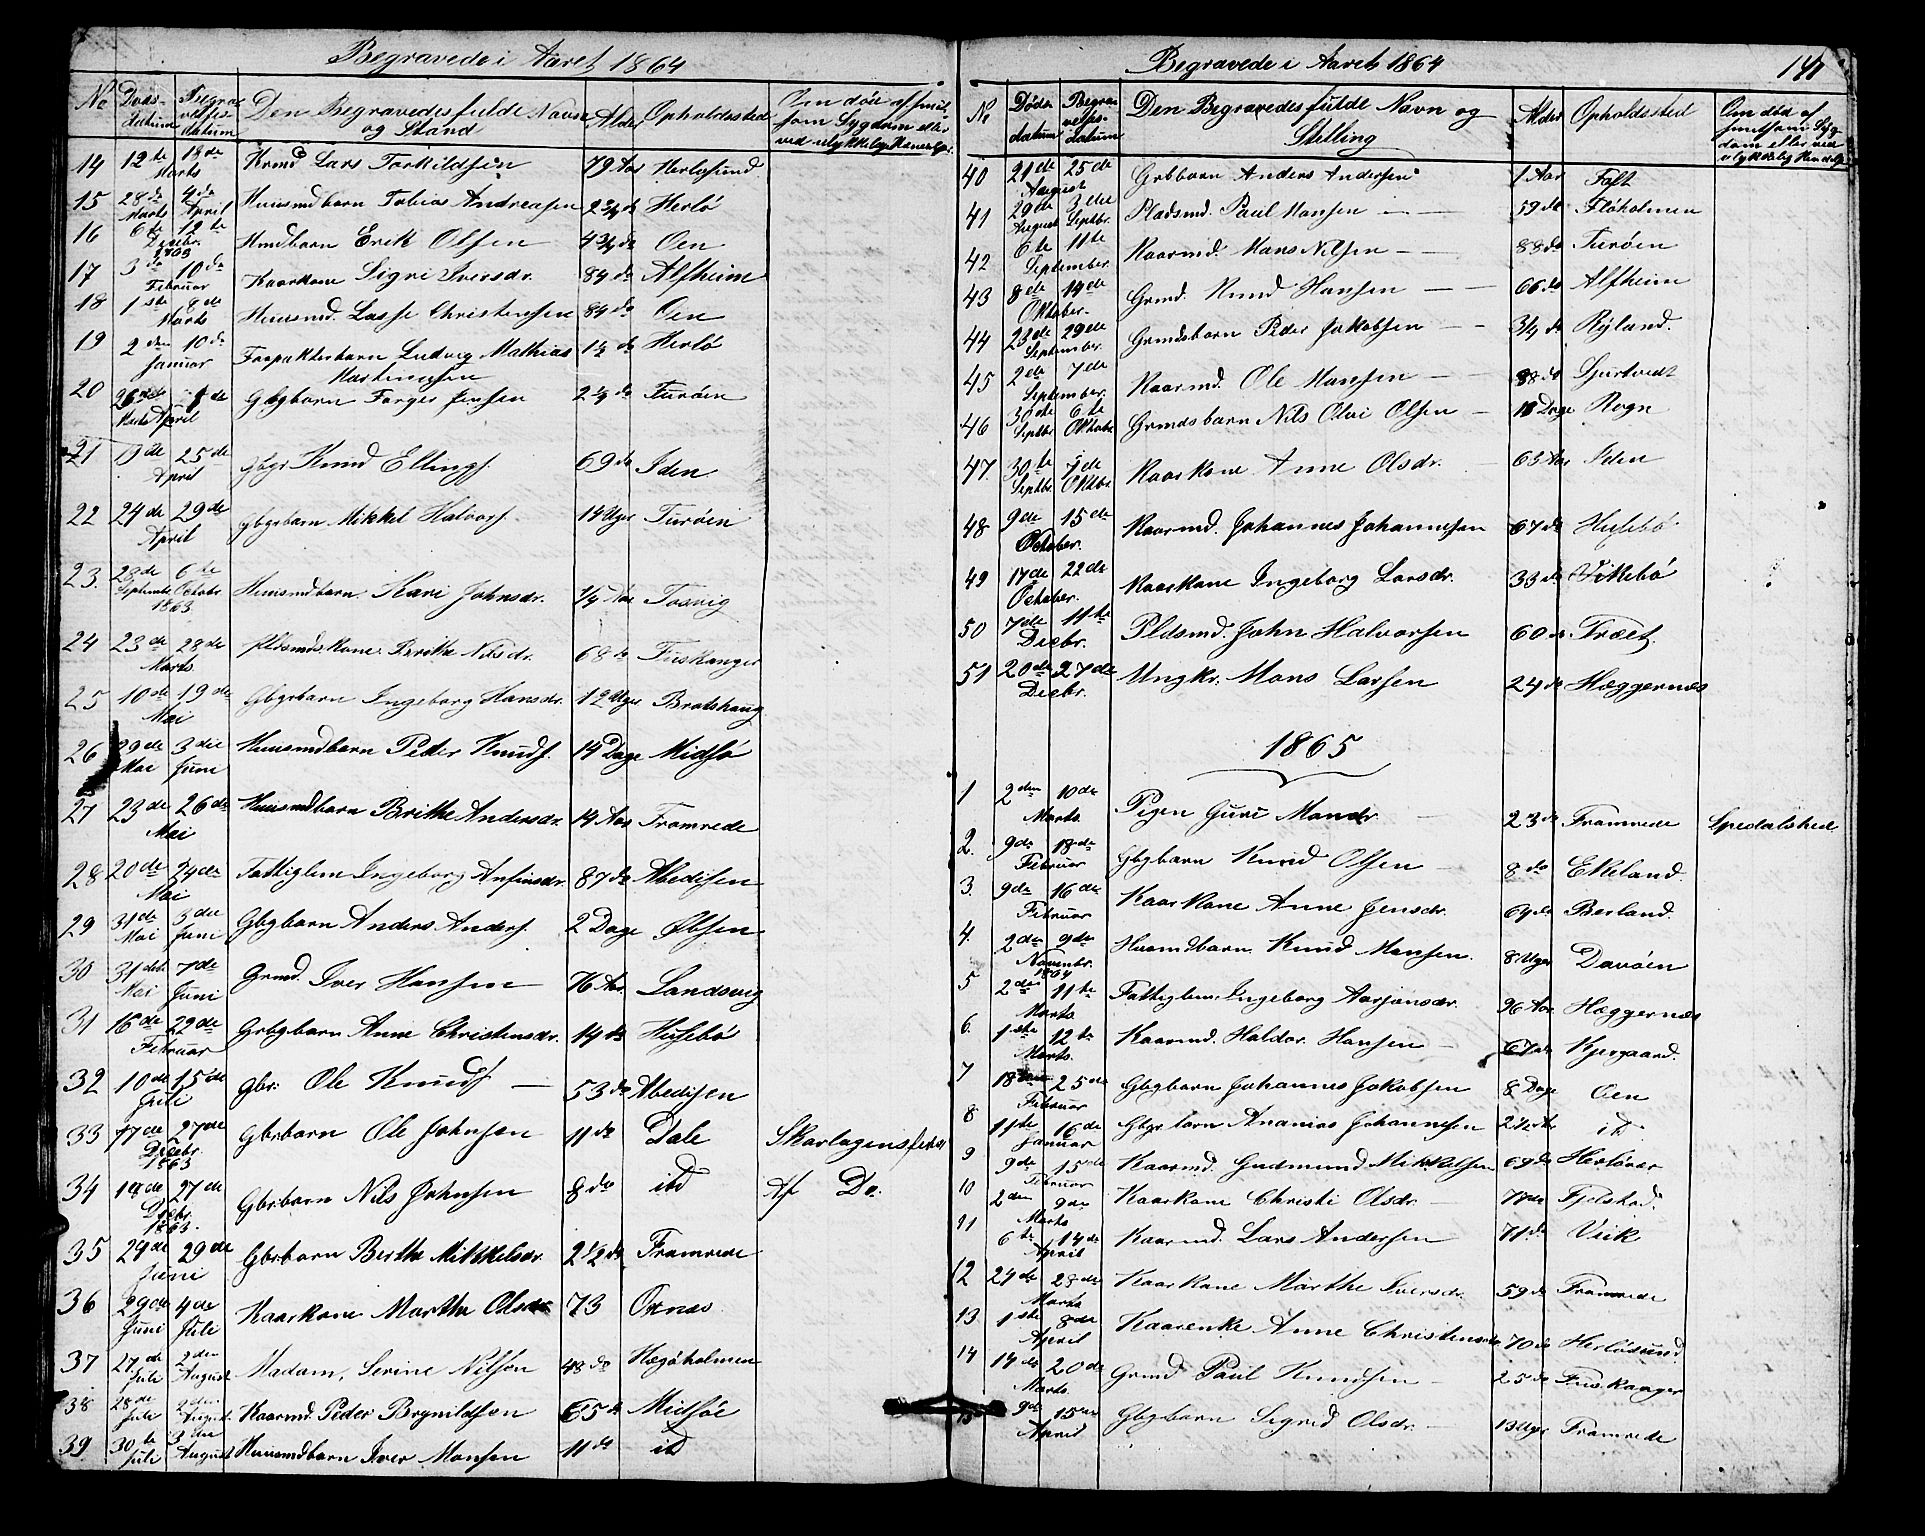 Begravede i Aaret 1864
No Døds-datum Begravelses-datum Den Begravedes fulde Navn og Stand Alder Opholdssted Om død af smitsom Sygdom eller ved ulykkelig Hændelse
14 12te 18de Marts Krmd Lars Torkildsen 79 Aar Herløsund
15 28de Marts 4de April Huusmdbarn Tobias Andreasen 2 3/4 do Herlö
16 6te 12te Decbr. 1863 Hmdbarn Erik Olsen 4 3/4 do Oen
17 3de 10de Februar Kaarkone Sigri Iversdr. 84 do Alfheim
18 1ste 8de Marts Huusmd. Lasse Christensen 84 do Oen
19 2den 10de Januar Forpakterbarn Ludvig Mathias Martinussen 1 1/2 do Herlö
20 26de Marts 1ste April Gbgbarn Torger Jensen 2 1/4 do Turöen
21 19de 25de April Gbgr Knud Ellings. 69 do Iden
22 24de 29de April Gbgrbarn Mikkel Halvors. 14 Uger Turöen
23. 28de September 6te Octobr 1863 Huusmdbarn. Kari Johnsdr. 1/4 Aar Tosvig
24 23de 28de Marts Pldsmdskone. Berithe Nilsdr. 68 do Fuskanger
25 10de 19de Mai Gbgrbarn Ingeborg Hansdr. 12 Uger Bratshaug
26 29de Mai 3die Juni Huusmdbarn Peder Knuds. 14 Dage Midsö
27 23de 26de Mai Huusmdbarn Brithe Andersdr. 14 Aar Framrede
28 20de 24de Mai Fattiglem Ingeborg Ansinsdr. 87 do Abedissen
29 31de Mai 3die Juni Gbgbarn Anders Anders. 2 Dage Øbsen
30 31de Mai 7de Juni Grmd. Iver Hansen 76 Aar. Landsvig
31 16de 22de Februar Grbgbarn Anne Christensdr. 14 do Husebö
32 10de 15de Juli Gbr. Ole Knuds. 53 do Abedissen
33 17de 27de Decbr. 1863 Gbrbarn Ole Johnsen 11 do Dale Skarlagensfeber
34 19de 27de Decbr. 1863. Gbrbarn Nils Johnsen 8 do itd Af Do.
35 24de 29de Juni Gbrbarn Berthe Mikkelsdr. 2 1/2 do Framrede
36 29de Juni 4de Juli Kaarkone Marthe Olsdr 73 Oxnæs
37 27de Juli 2den August Madam, Serine Nilson 48 do Hægöholmen
38 28de Juli 2den August Kaarmd. Peder Brynildsen 65 do Midsöe
39 30te Juli 3die August Huusmdbarn Iver Monsen 11 do itd
Begravede i Aaret 1864 141
No Døds datum Begravelses-datum Den Begravedes fulde Navn og Stilling Alder Opholdssted Om død af smitsom Sygdom eller ved ulykkelig Hændelse
40 21de 25de August Grbbarn Anders Andersen 1 Aar Toft
41 29de August 3die Septbr. Pladsmd. Paul Hansen 59 do Flöholmen
42 6te 11te September. Kaarmd. Hans Nilsen 88 do Turöen
43 8de 14de Oktober. Grmd. Knud Hansen 66 do Alfheim
44 23de 29de September. Grmdsbarn Peder Jakobsen 3/4 do Ryland.
45 2de 7de September. Kaarmd. Ole Hansen 88 do Sjurtvedt
46 30te Septbr 6te Oktober Grmdsbarn Nils Olai Olsen 18 Dage Rogn
47. 30te Septbr. 7de Oktbr. Kaarkone Anne Olsdr. 63 Aar Iden
48 9de 15de October. Kaarmd. Johannes Johannessen 67 do Husebö
49 17de 22de October. Kaarkone Ingeborg Larsdr. 33 do Vikebö
50 7de 11te Decbr. Pldsmd. John Halvorsen 60 do Træet.
51 20de 27de Decbr. Ungkr. Mons Larsen 24 do Hæggernæs
1865
1 2den 10de Marts Pigen Guri Monsdr. 23 do Framrede Spedalskhed
2. 9de 18de Februar Gbgbarn Knud Olsen 8 do Ekeland.
3. 9de 16de Februar Kaarkone Anne Jensdr. 64 do Berland.
4. 2den 9de Novembr. 1864 Husmdbarn Knud Monsen. 8 Uger Davöen
5 2den 11te Marts Fattiglem Ingeborg Aasjonsdr. 96 Aar Hæggernæs
6. 1ste 12te Marts. Kaarmd. Haldor Hansen 67 do Kjergaard.
7 18de 25de Februar Gbgbarn Johannes Jakobsen 8 Dage Oen
8 11te 16de Januar Gbgrbarn Ananias Johannesen 2 1/2 Aar it
9 9de 15de Februar Kaarmd. Gudmund Mikkelsen 69 do Herlövær
10 2den 9de Marts Kaarkone Christi Olsdr. 77 do Fjelstad.
11 6te 14de April Kaarmd. Lars Andersen 71 do Veik
12 24de 28de Marts Kaarkone Marthe Iversdr. 59 do Framrede
13. 1ste 8de April Kaarenke Anne Christensdr 70 do Herlösund.
14 14de 20de Marts. Grmd Paul Knudsen 25 do Fuskanger
15 9de 15de April Gbgbarn Sigrid Olsdr. 13 Uger Framrede